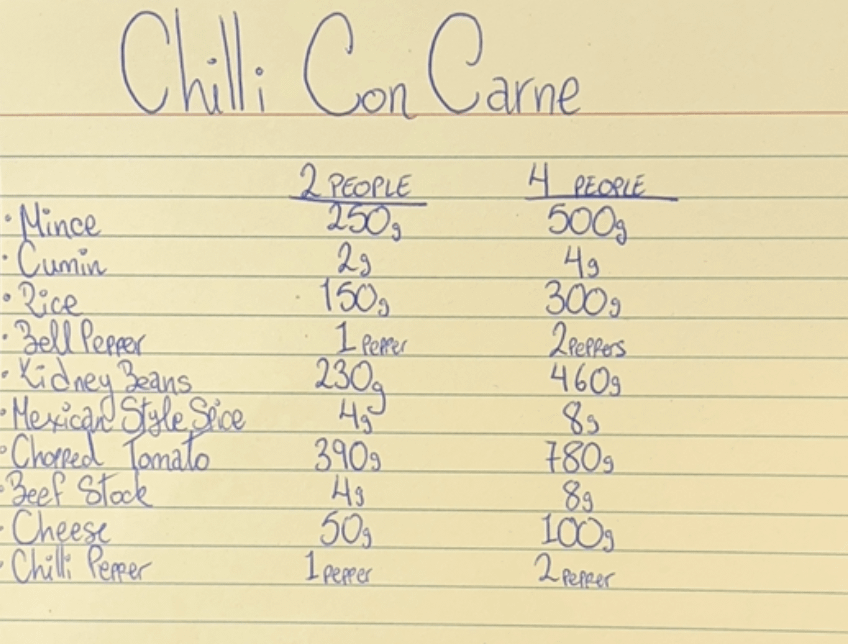 Chilli Con Carne
2 PEOPLE 4 PEOPLE
• Mince 250g 500g
• Cumin 2g 4g
• Rice 150g 300g
• Bell Pepper 1 Pepper 2 Peppers
• Kidney Beans 230g 460g
• Mexican Style Spice 4g 8g
• Chopped Tomato 390g 780g
• Beef Stock 4g 8g
• Cheese 50g 100g
• Chilli Pepper 1 Pepper 2 Pepper